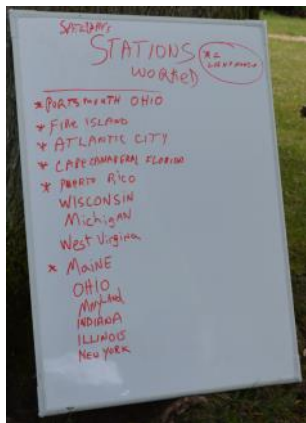 SATURDAYS
STATIONS
WORKED
*=
LIGHTHOUSE
* PORTSMOUTH OHIO
* FIRE ISLAND
* ATLANTIC CITY
* CAPE CANAVERAL FLORIDA
* PUERTO RICO
WISCONSIN
MichigAN
West Virginia
* MAINE
OHIO
Maryland
INDIANA
ILLINOIS
NEW YORK